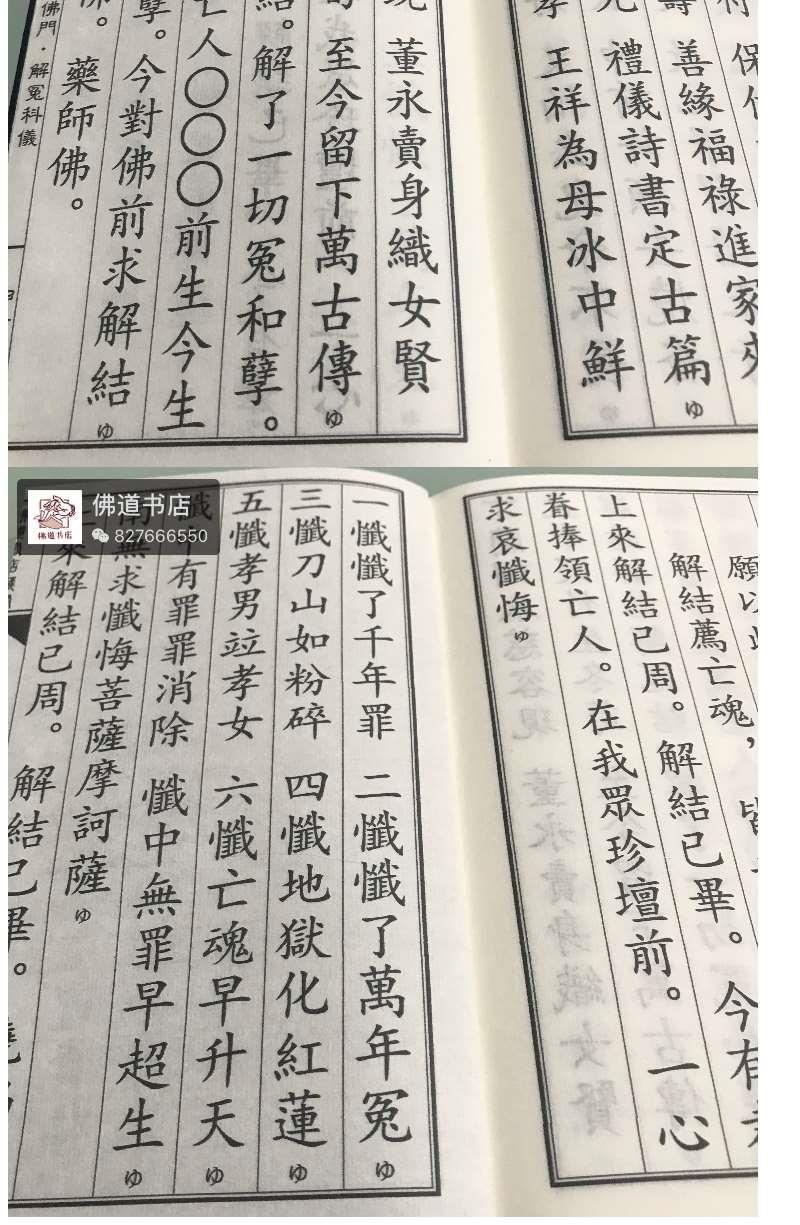 保
善緣福祿進家
禮儀詩書定古篇ゆ
王祥為母冰中鮮
董永賣身織女賢
至今留下萬古傳ゆ
解了一切冤和孽。
亡人○○○前生今生
孽。今對佛前求解結ゆ
藥師佛。
佛門·解冤科儀
佛道书店
827666550
佛道书店
願以此
解結薦亡魂，
上來解結已周。解結已畢。今有孝
眷捧領亡人。在我眾珍壇前。一心
求哀懺悔ゆ
一懺懺了千年罪 二懺懺了萬年冤ゆ
三懺刀山如粉碎 四懺地獄化紅蓮ゆ
五懺孝男竝孝女 六懺亡魂早升天ゆ
懺中有罪罪消除 懺中無罪早超生ゆ
南無求懺悔菩薩摩訶薩ゆ
上來解結已周。解結已畢。